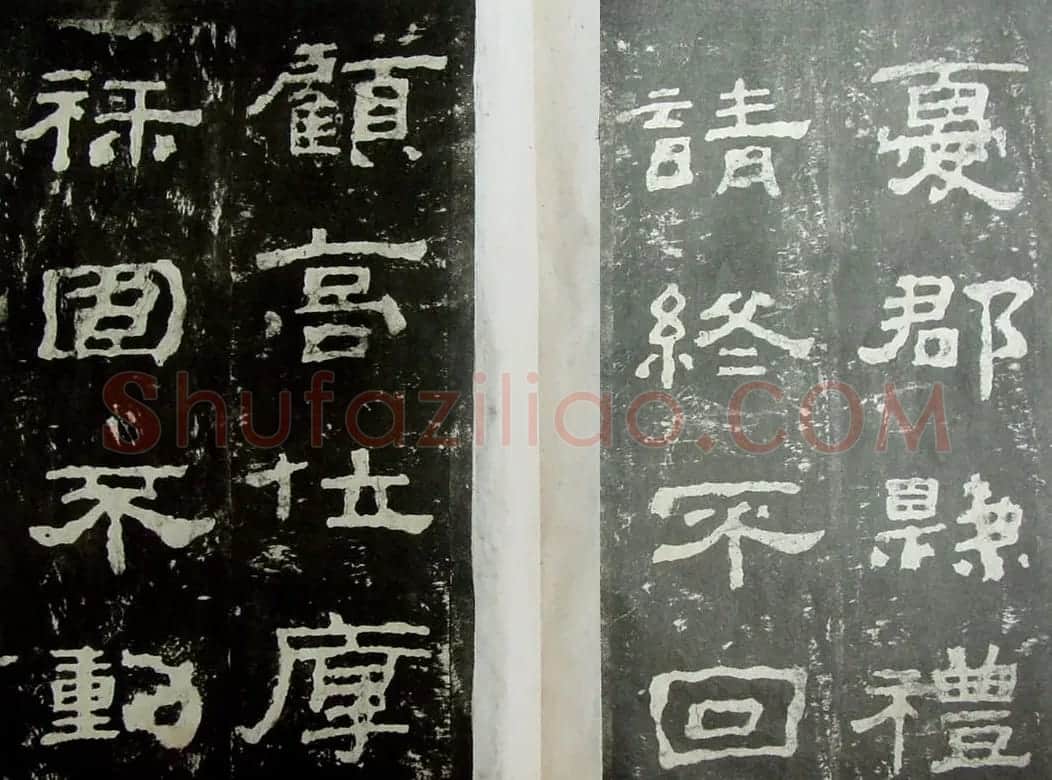 憂郡縣禮
請終不回
顧高位厚
祿固不動
Shufaziliao.COM